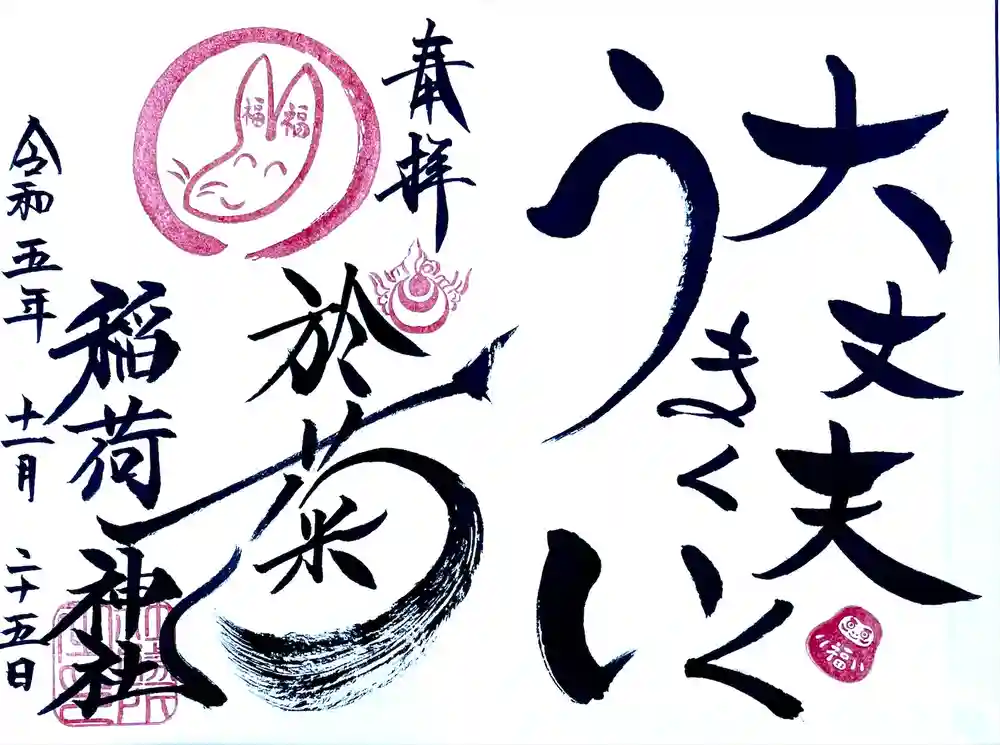 大丈夫
うまくいく
い
奉拝
福 福
於菊
稲荷神社
令和五年 十一月 二十五日
福